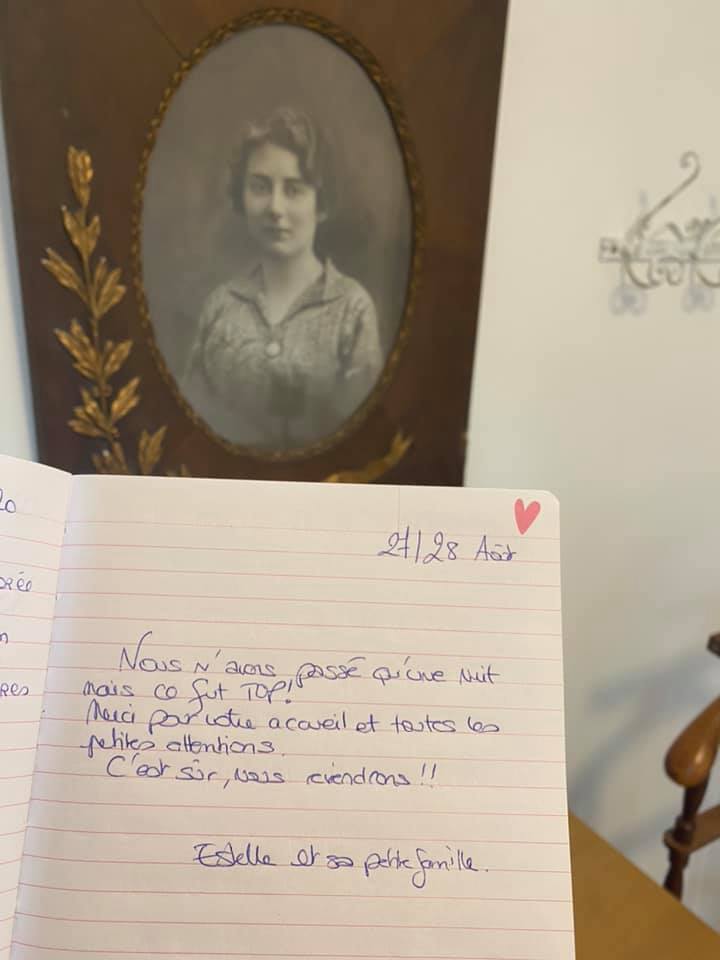 20
orée
n
res
27/28 Août
Nous n'avons passé qu'une nuit
mais ce fut TOP!
Merci pour votre accueil et toutes les
petites attentions.
C'est sûr, nous reviendrons!!
Estelle et sa petite famille.